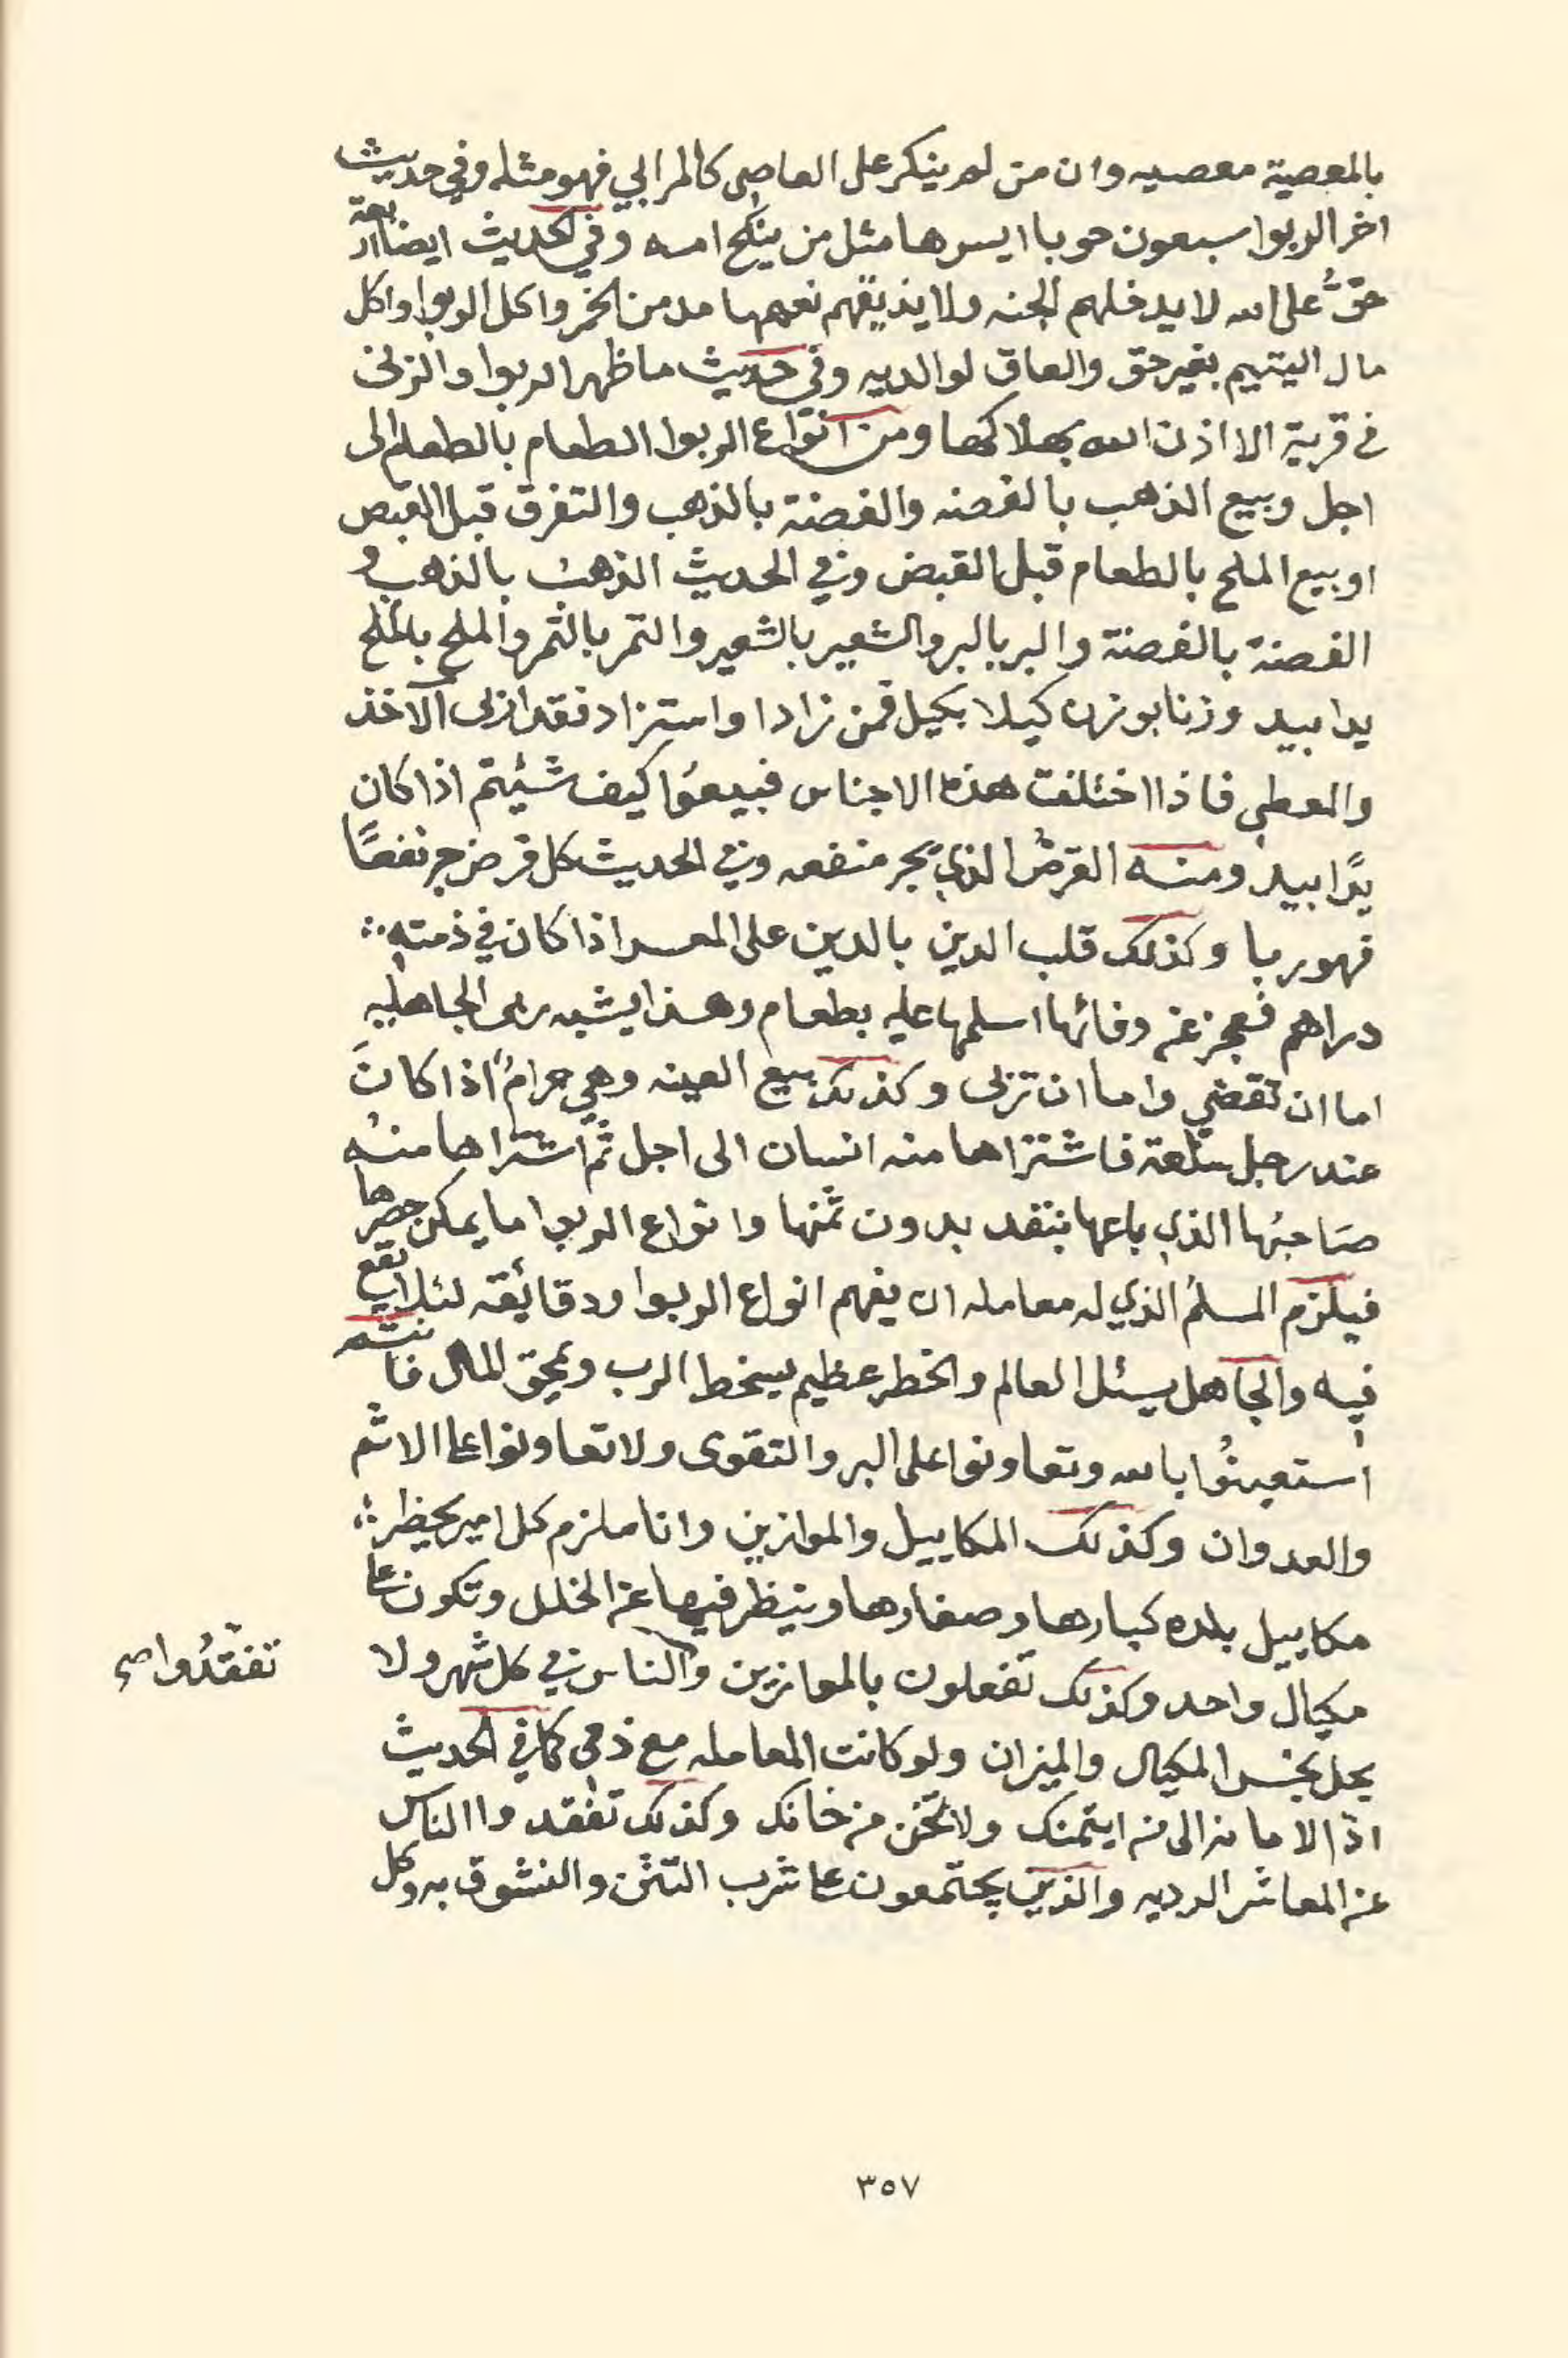 بالمعصية معصيه وان من لم ينكر على العاصى كالمرابي فهو مثله وفي حديث
اخر الربوا سبعون حوبا ايسرها مثل من ينكح امه وفي الحديث ايضا اربعة
حقٌ على الله لا يدخلهم الجنه ولا يذيقهم نعيمها مدمن الخمر واكل الربوا واكل
مال اليتيم بغير حق والعاق لوالديه وفي حديث ما ظهر الربوا والزنى
في قرية الا اذن الله بهلاكها ومن انواع الربوا الطعام بالطعام الى
اجل وبيع الذهب بالفضه والفضة بالذهب والتفرق قبل القبض
او بيع الملح بالطعام قبل القبض وفي الحديث الذهب بالذهب و
الفضة بالفضة والبر بالبر والشعير بالشعير والتمر بالتمر والملح بالملح
يدا بيد وزنا بوزن كيلا بكيل فمن زاد او استزاد فقد اربى الآخذ
والمعطي فاذا اختلفت هذه الاجناس فبيعوا كيف شيئتم اذا كان
يدًا بيد ومنه القرض الذي يجر منفعه وفي الحديث كل قرض جر نفعًا
فهو ربا وكذلك قلب الدين بالدين على المعسر اذا كان في ذمته
دراهم فعجز عن وفائها اسلمها عليه بطعام وهذا يشبه ربى الجاهليه
اما ان تقضي واما ان تربى وكذلك بيع العينه وهي حرامٌ اذا كان
عند رجل سلعة فاشتراها منه انسان الى اجل ثم اشتراها منه
صاحبُها الذي باعها بنقد بدون ثمنها وانواع الربوا ما يمكن حصرها
فيلزم المسلم الذي له معامله ان يفهم انواع الربوا ودقائقه لئلا يقع
فيه والجاهل يسئل العالم والخطر عظيم يسخط الرب ويمحق المال فانتم
استعينُوا بالله وتعاونوا على البر والتقوى ولا تعاونوا على الاثم
والعدوان وكذلك المكاييل والموازين وانا ملزم كل امير يحظر
مكاييل بلده كبارها وصغارها وينظر فيها عن الخلل وتكون على
مكيال واحد وكذلك تفعلون بالموازين والناس في كل شهر ولا
تفقّدُوا صح
يحل بخس المكيال والميزان ولو كانت المعامله مع ذمي كما في الحديث
ادّ الامانه الى من ايتمنك ولا تخن من خانك وكذلك تفقدوا الناس
عن المعاشر الرديه والذين يجتمعون على شرب التتن والنشوق به وكل
٣٥٧